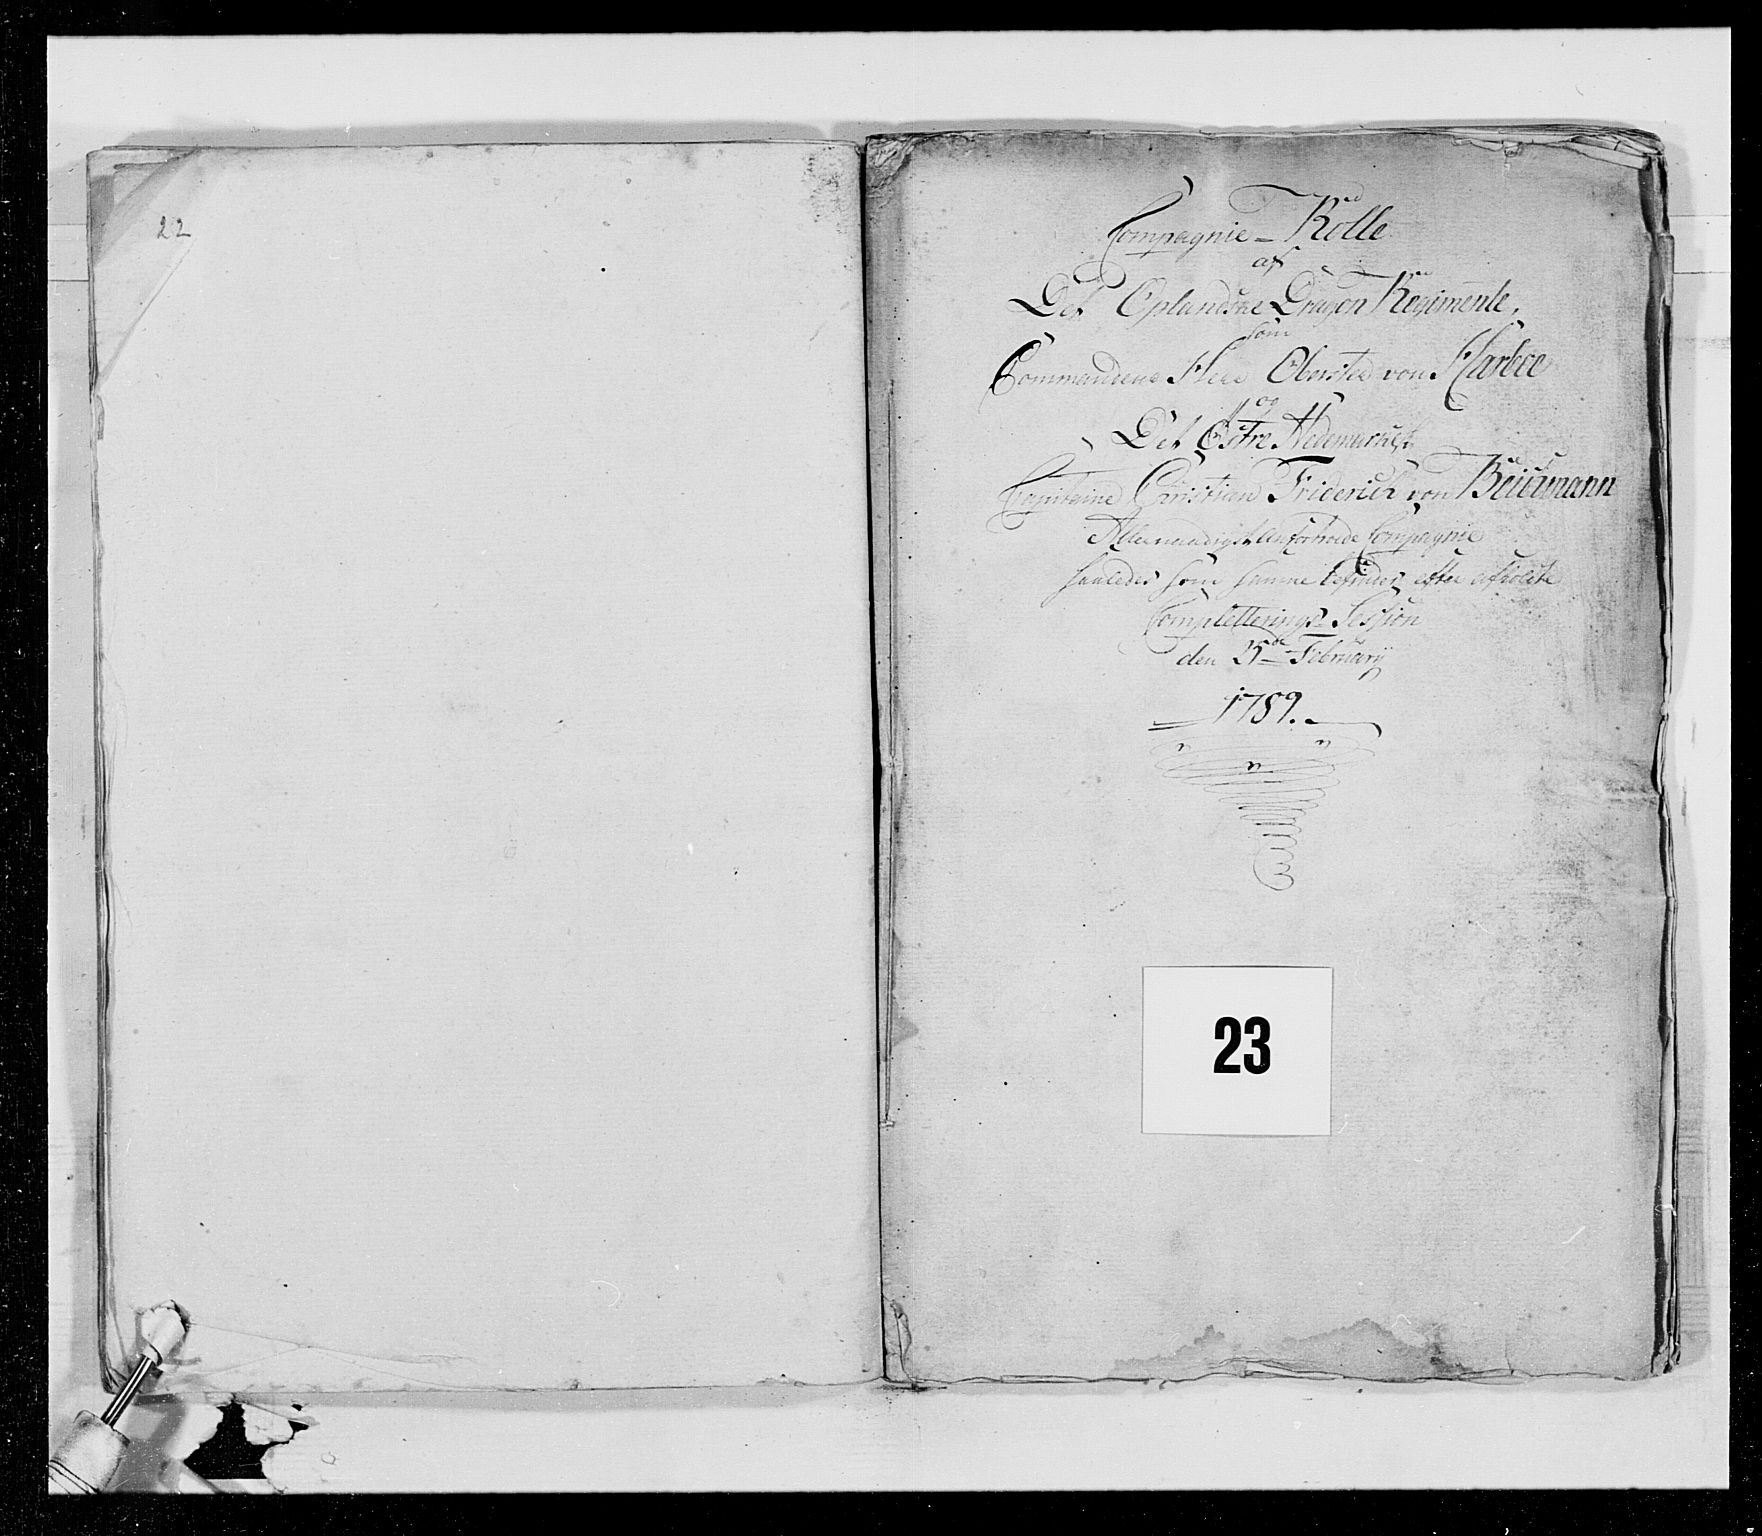 22
Compagnie-Rolle
af
Det Oplandske Dragon Regimente,
som
Commanderes Herr Oberster von
og
Det Østre Hedemarkes
Capitaine Christian Friderich von
Allernaadigst Anfortroede Compagnie
saaledes som samme befindes efter afholdte
Completterings-Session
den Februarÿ
1789.
23